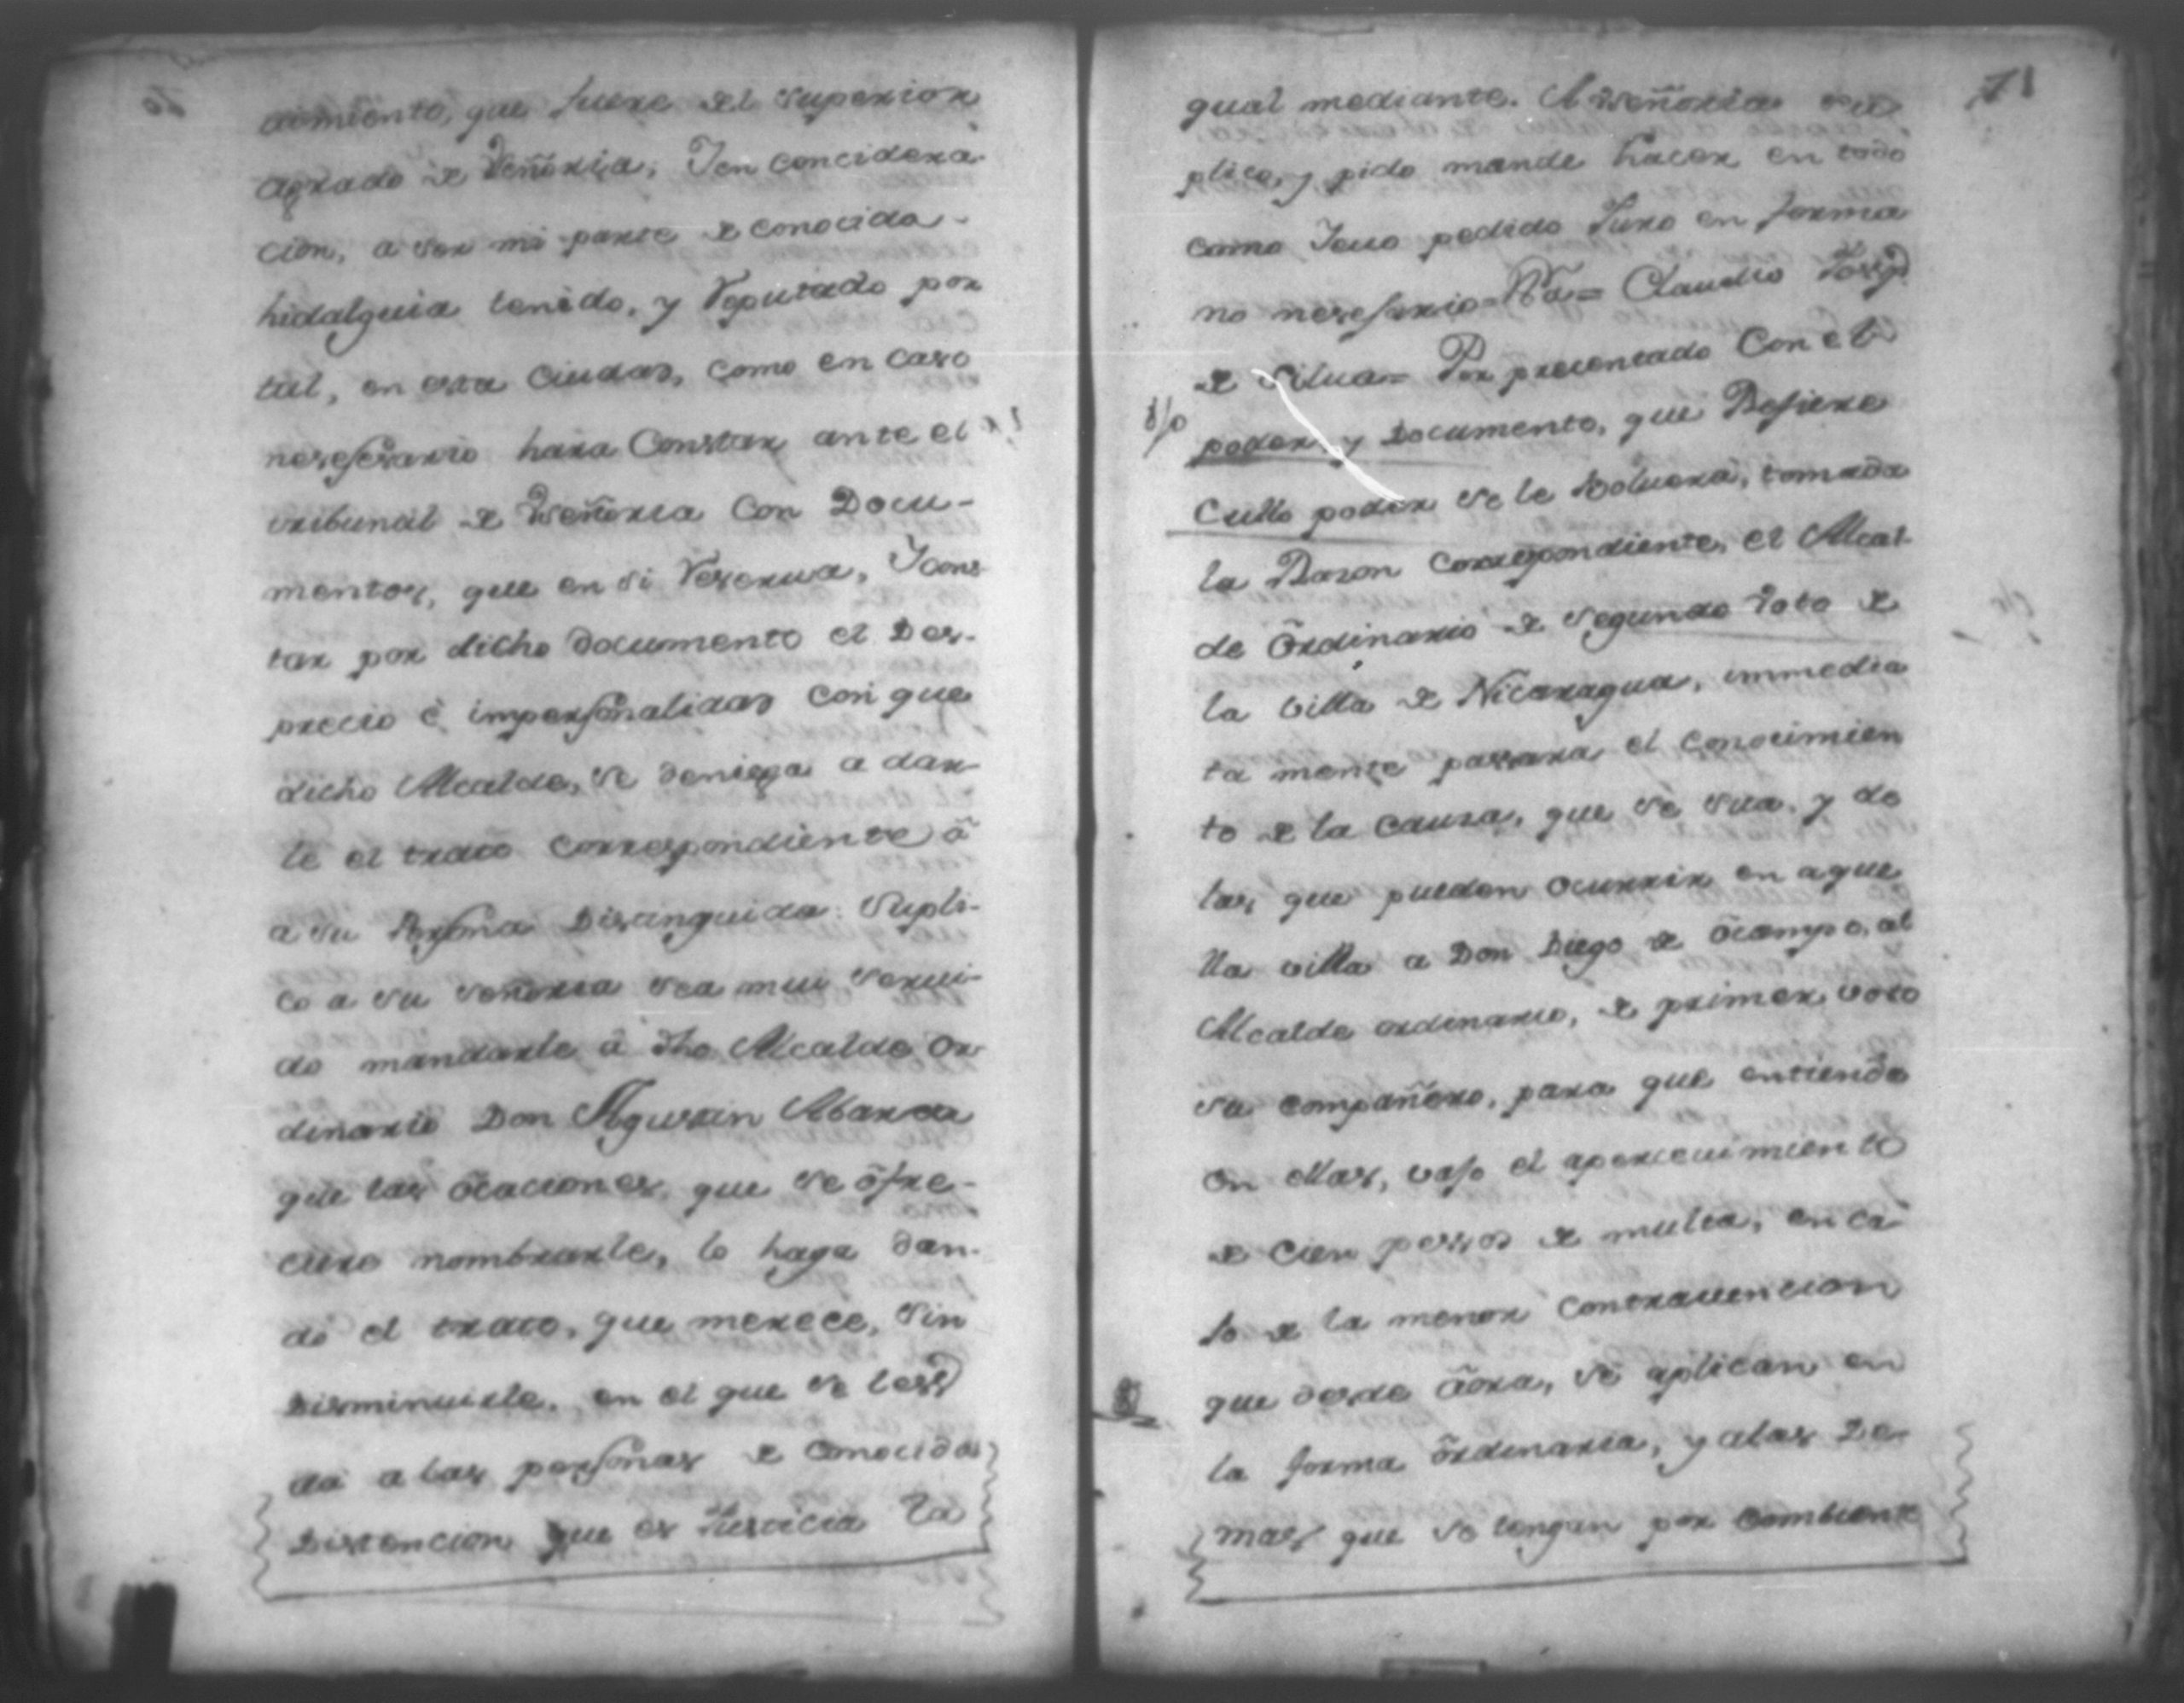 cimiento, que fuere del superior
agrado de Vseñoria; Y en concidera
cion, a ser mi parte de conocida
hidalguia tenido, y reputado por
tal, en esta Ciudad, como en caso
nesessario hara Constar ante el
tribunal de Vseñoria Con Docu-
mentos, que en si reserva, Y cons
tar por dicho documento el Des-
precio è impersonalidad con que
dicho Alcalde, se deniega a dar
le el trato correspondiente â
a su Persona Distinguida: Supli-
co a su señoria sea mui servi-
do mandarle â dho Alcalde Or
dinario Don Agustin Abarca
que las ôcaciones, que se ôfre-
ciere nombrarle, lo haga dan-
do el trato, que merece, sin
Disminuirle, en el que se les
da a las personas de conocida
Distencion que es Justicia la
71
qual mediante. A Vseñoria su
plico, y pido mande hacer en todo
como llevo pedido Juro en forma
no nesesario= Va= Claudio Joseph
de Silva= Por precentado Con el
poder, y Documento, que Refiere
Cullo poder se le bolverá, tomada
la Razon Correspondiente, el Alcal
de Ôrdinario de segundo voto de
la villa de Nicaragua, immedia
ta mente passara el Conocimien
to de la causa, que se sita y de
las que puedan ocurrir en aque
lla villa a Don Diego de Ôcampo, al
Alcalde ordinario, de primer voto
su compañero, para que entienda
en ellas, vajo el apercevimiento
de cien pessos de multa, en ca
so de la menor contravencion
que desde âora, se aplican en
la forma ôrdinaria, y alas De
mas que se tengan por combiente